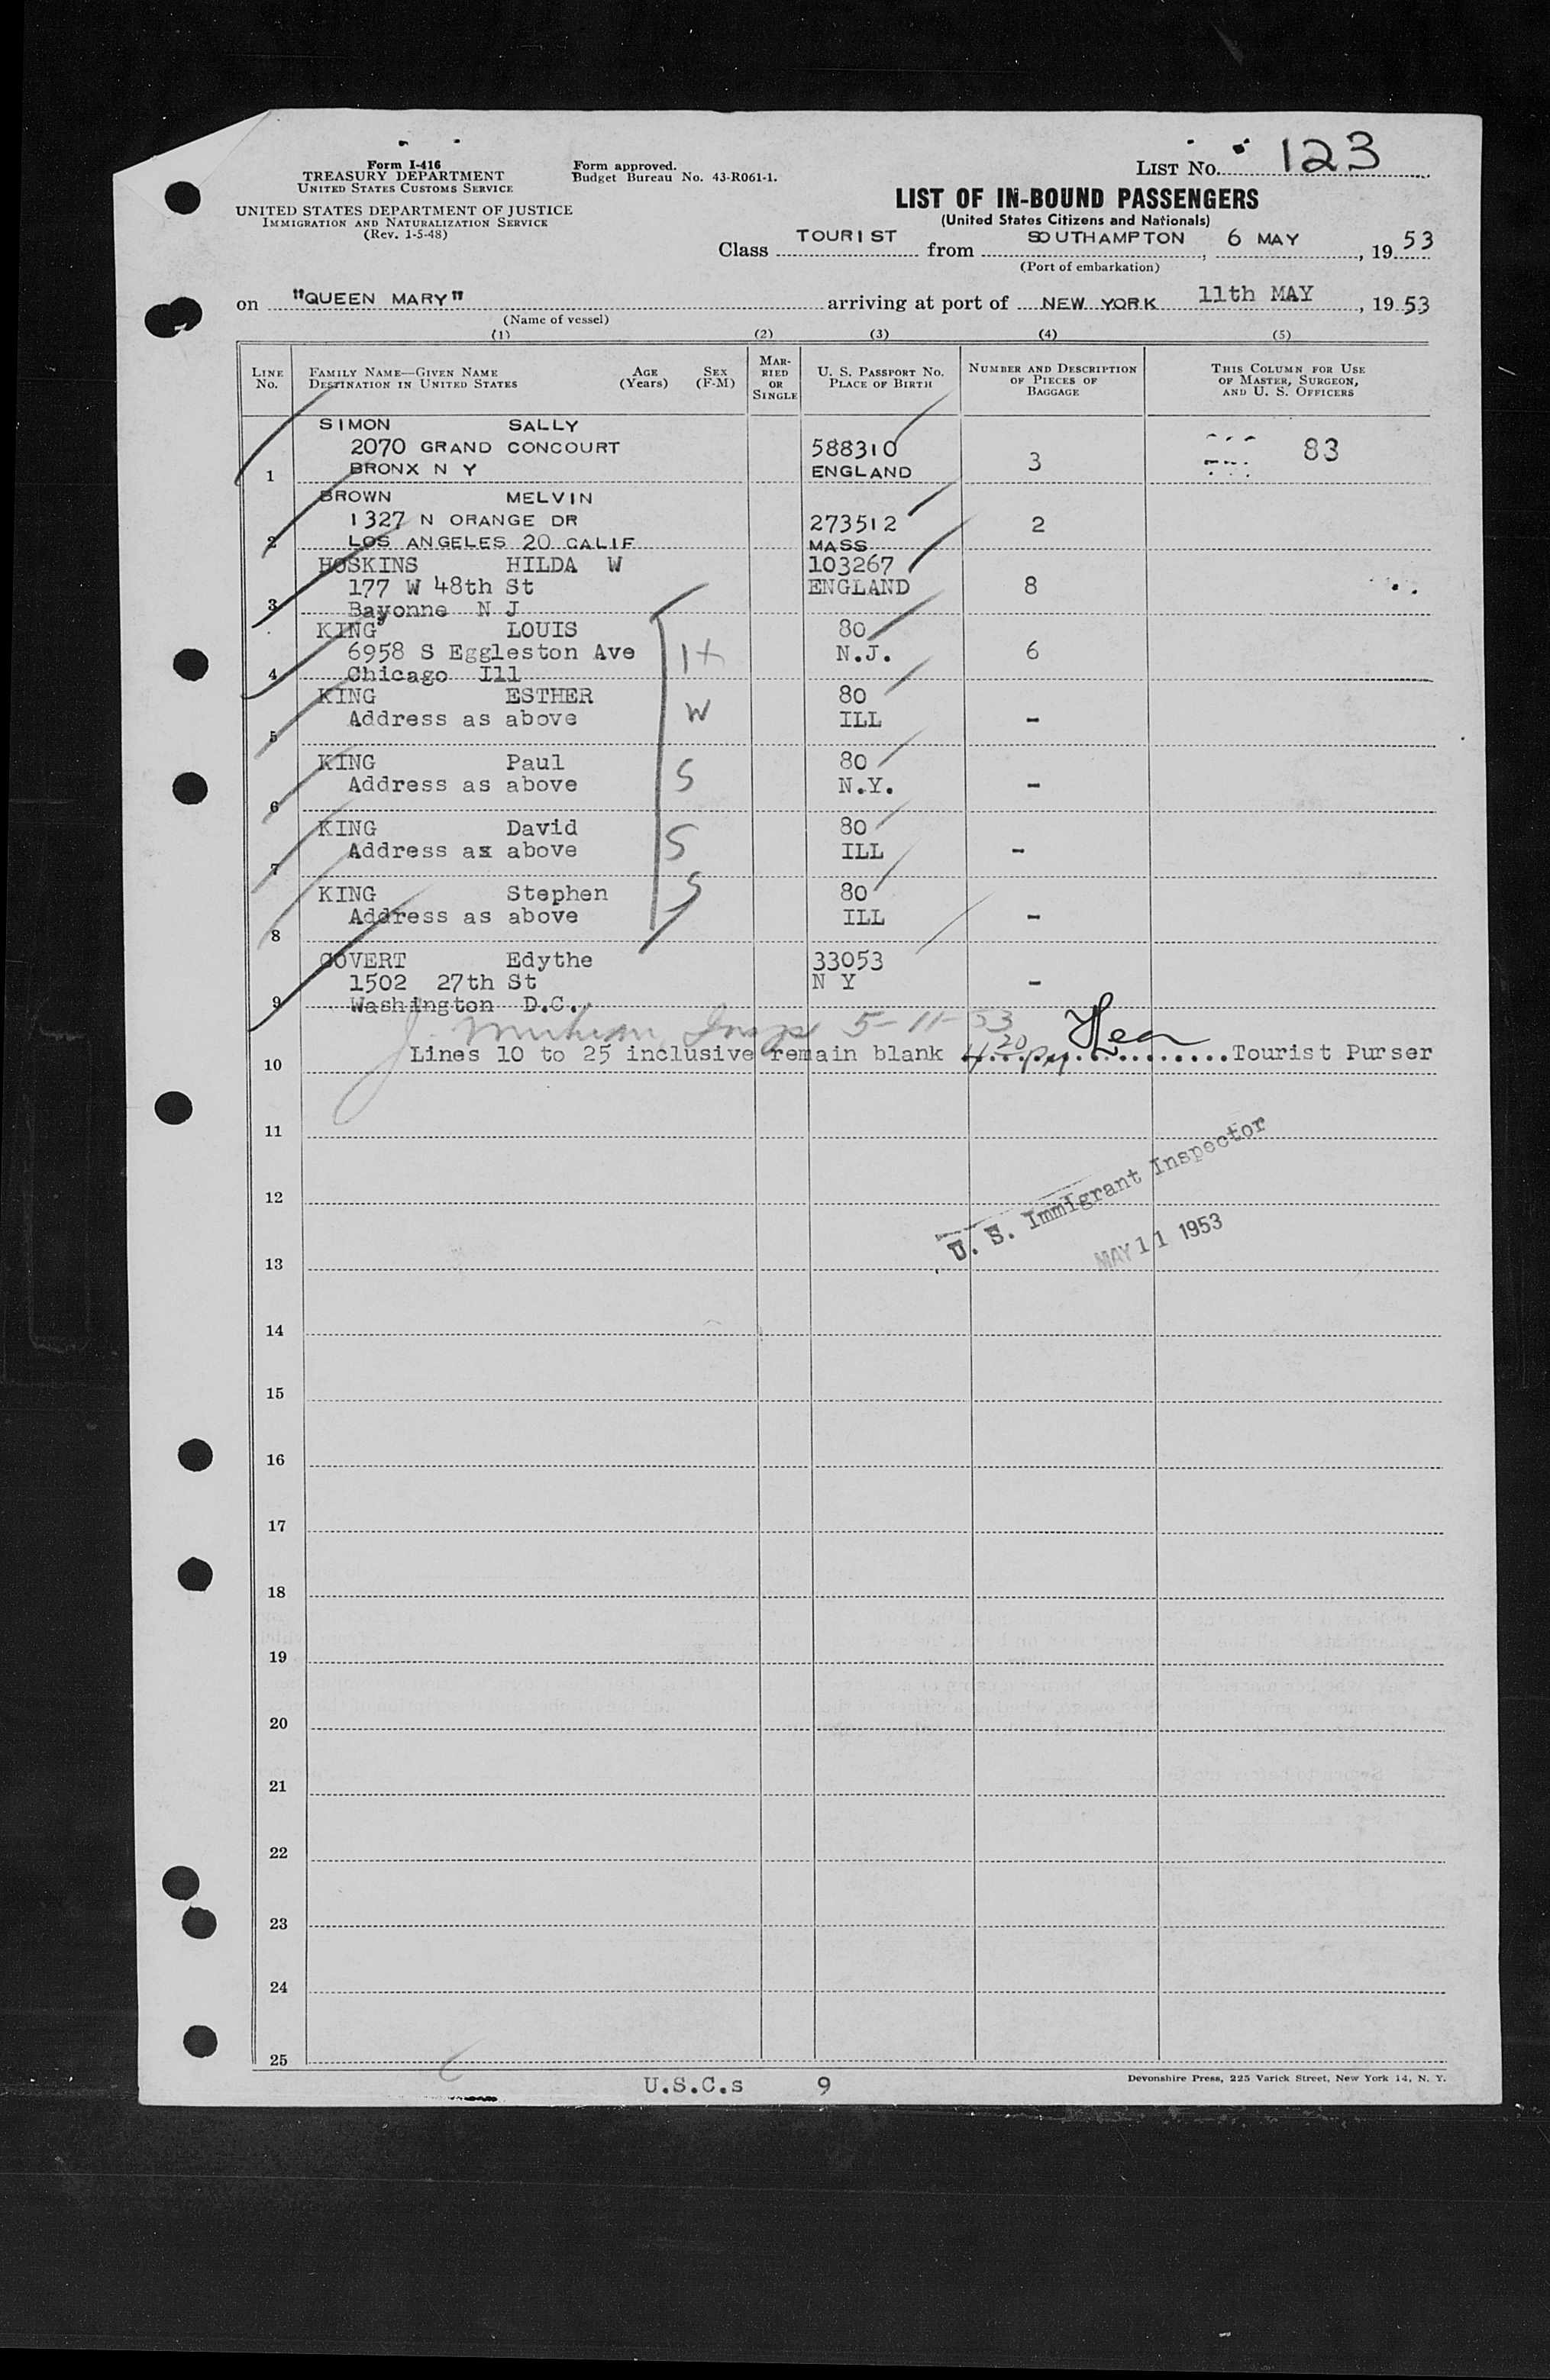 Form I-416
TREASURY DEPARTMENT
UNITED STATES CUSTOMS SERVICE
UNITED STATES DEPARTMENT OF JUSTICE
IMMIGRATION AND NATURALIZATION SERVICE
(Rev. 1-5-48)
Form approved.
Budget Bureau No. 43-R061-1.
LIST No. 123
LIST OF IN-BOUND PASSENGERS
(United States Citizens and Nationals)
Class TOURIST from SOUTHAMPTON, 6 MAY, 19 53
(Port of embarkation)
on "QUEEN MARY" arriving at port of NEW YORK 11th MAY, 19 53
(Name of vessel)
(1) (2) (3) (4) (5)
LINE No. FAMILY NAME—GIVEN NAME DESTINATION IN UNITED STATES AGE (Years) SEX (F-M) MARRIED OR SINGLE U. S. PASSPORT NO. PLACE OF BIRTH NUMBER AND DESCRIPTION OF PIECES OF BAGGAGE THIS COLUMN FOR USE OF MASTER, SURGEON, AND U. S. OFFICERS
SIMON SALLY
2070 GRAND CONCOURT 588310 83
1 BRONX N Y ENGLAND 3
BROWN MELVIN
1327 N ORANGE DR 273512 2
2 LOS ANGELES 20 CALIF MASS
HOSKINS HILDA W 103267
177 W 48th St ENGLAND 8
3 Bayonne N J
KING LOUIS 80
6958 S Eggleston Ave H N.J. 6
4 Chicago Ill
KING ESTHER 80
Address as above W ILL -
5
KING Paul 80
Address as above S N.Y. -
6
KING David 80
Address as above S ILL -
7
KING Stephen S 80
Address as above ILL -
8
COVERT Edythe 33053
1502 27th St N Y -
9 Washington D.C.
5-11-53
10 Lines 10 to 25 inclusive remain blank 4 20 pm Tourist Purser
11
12
U. S. Immigrant Inspector
MAY 11 1953
13
14
15
16
17
18
19
20
21
22
23
24
25
U.S.C.s 9
Devonshire Press, 225 Varick Street, New York 14, N. Y.